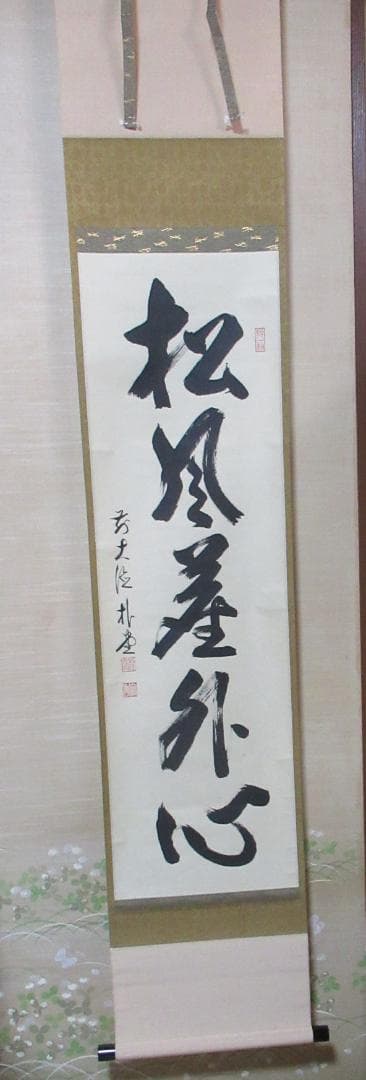 松風塵外心
前大徳朴堂